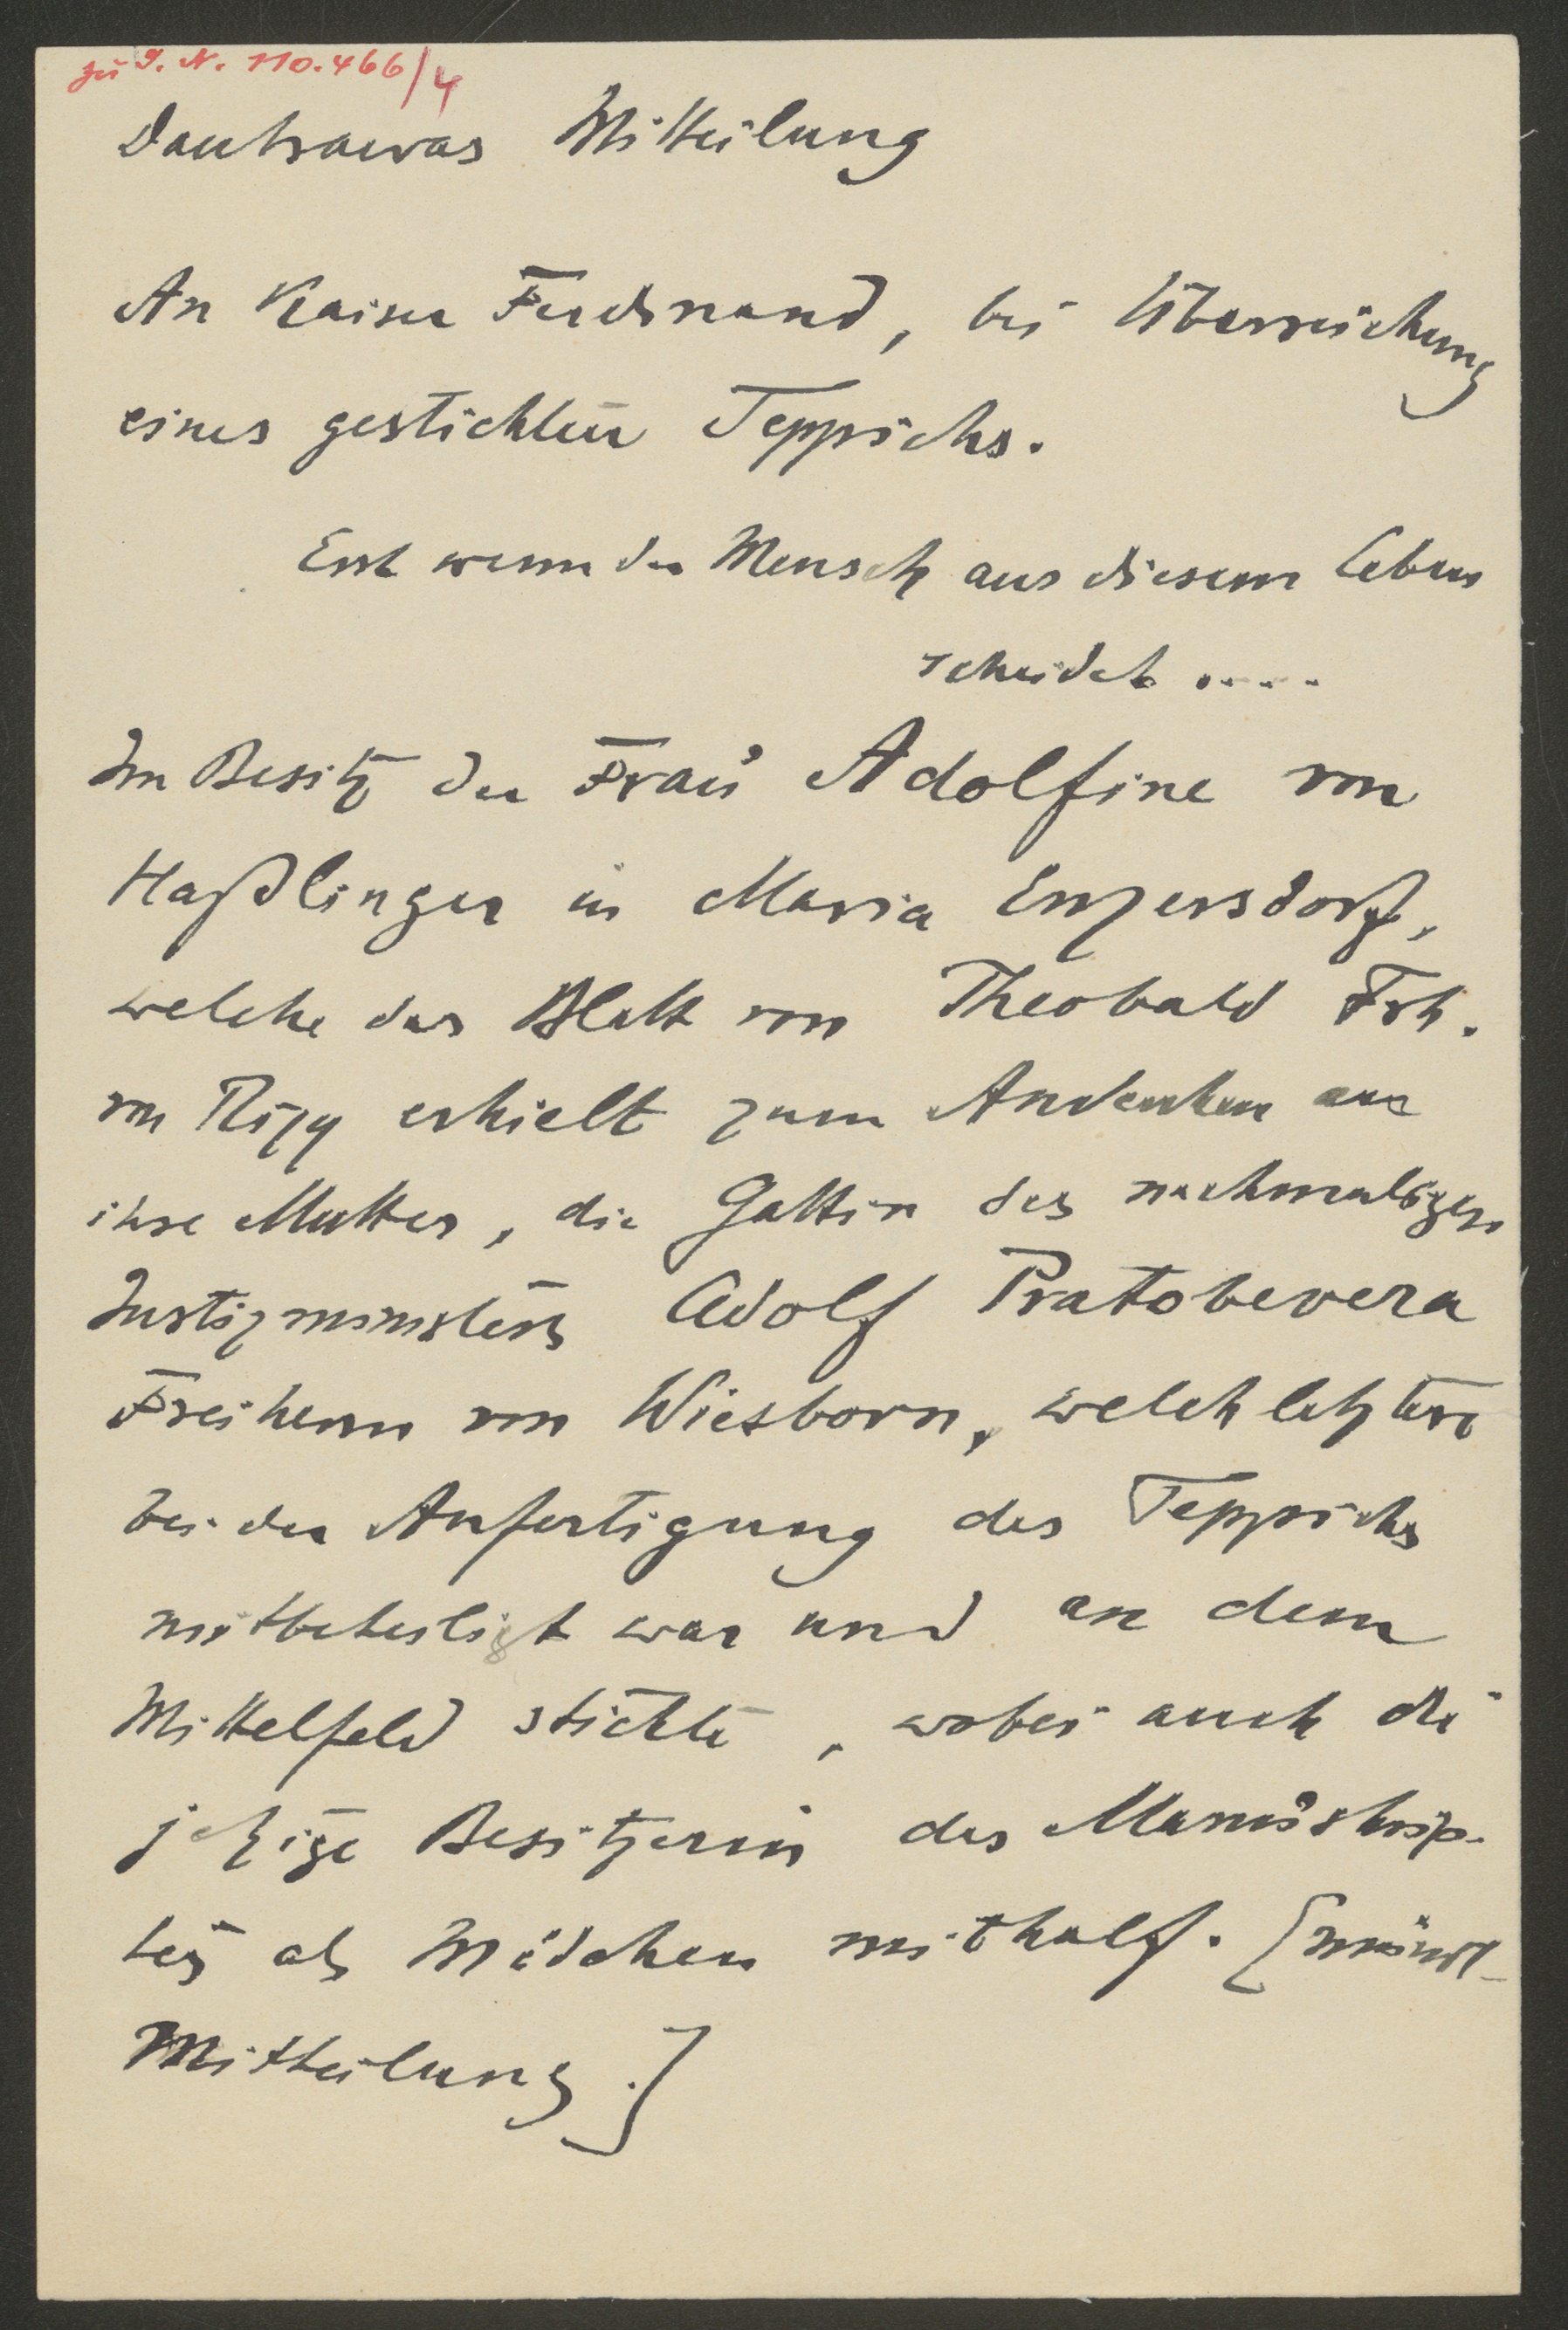 zu I. N. 110.466/4
Dautrawas Mitteilung
An Kaiser Ferdinand, bei Überreichung
eines gestickten Teppichs.
Erst wenn der Mensch aus diesem Leben
scheidet .....
Im Besitz der Frau Adolfine von
Haßlinger in Maria Enzersdorf,
welche das Blatt von Theobald Frh.
von Rizy erhielt zum Andenken an
ihre Mutter, die Gattin des nachmaligen
Justizministers Adolf Pratobevera
Freiherrn von Wiesborn, welch letztere
bei der Anfertigung des Teppichs
mitbeteiligt war und an dem
Mittelfeld stickte, wobei auch die
jetzige Besitzerin des Manuskrip-
tes als Mädchen mithalf. [mündl.
Mitteilung.]